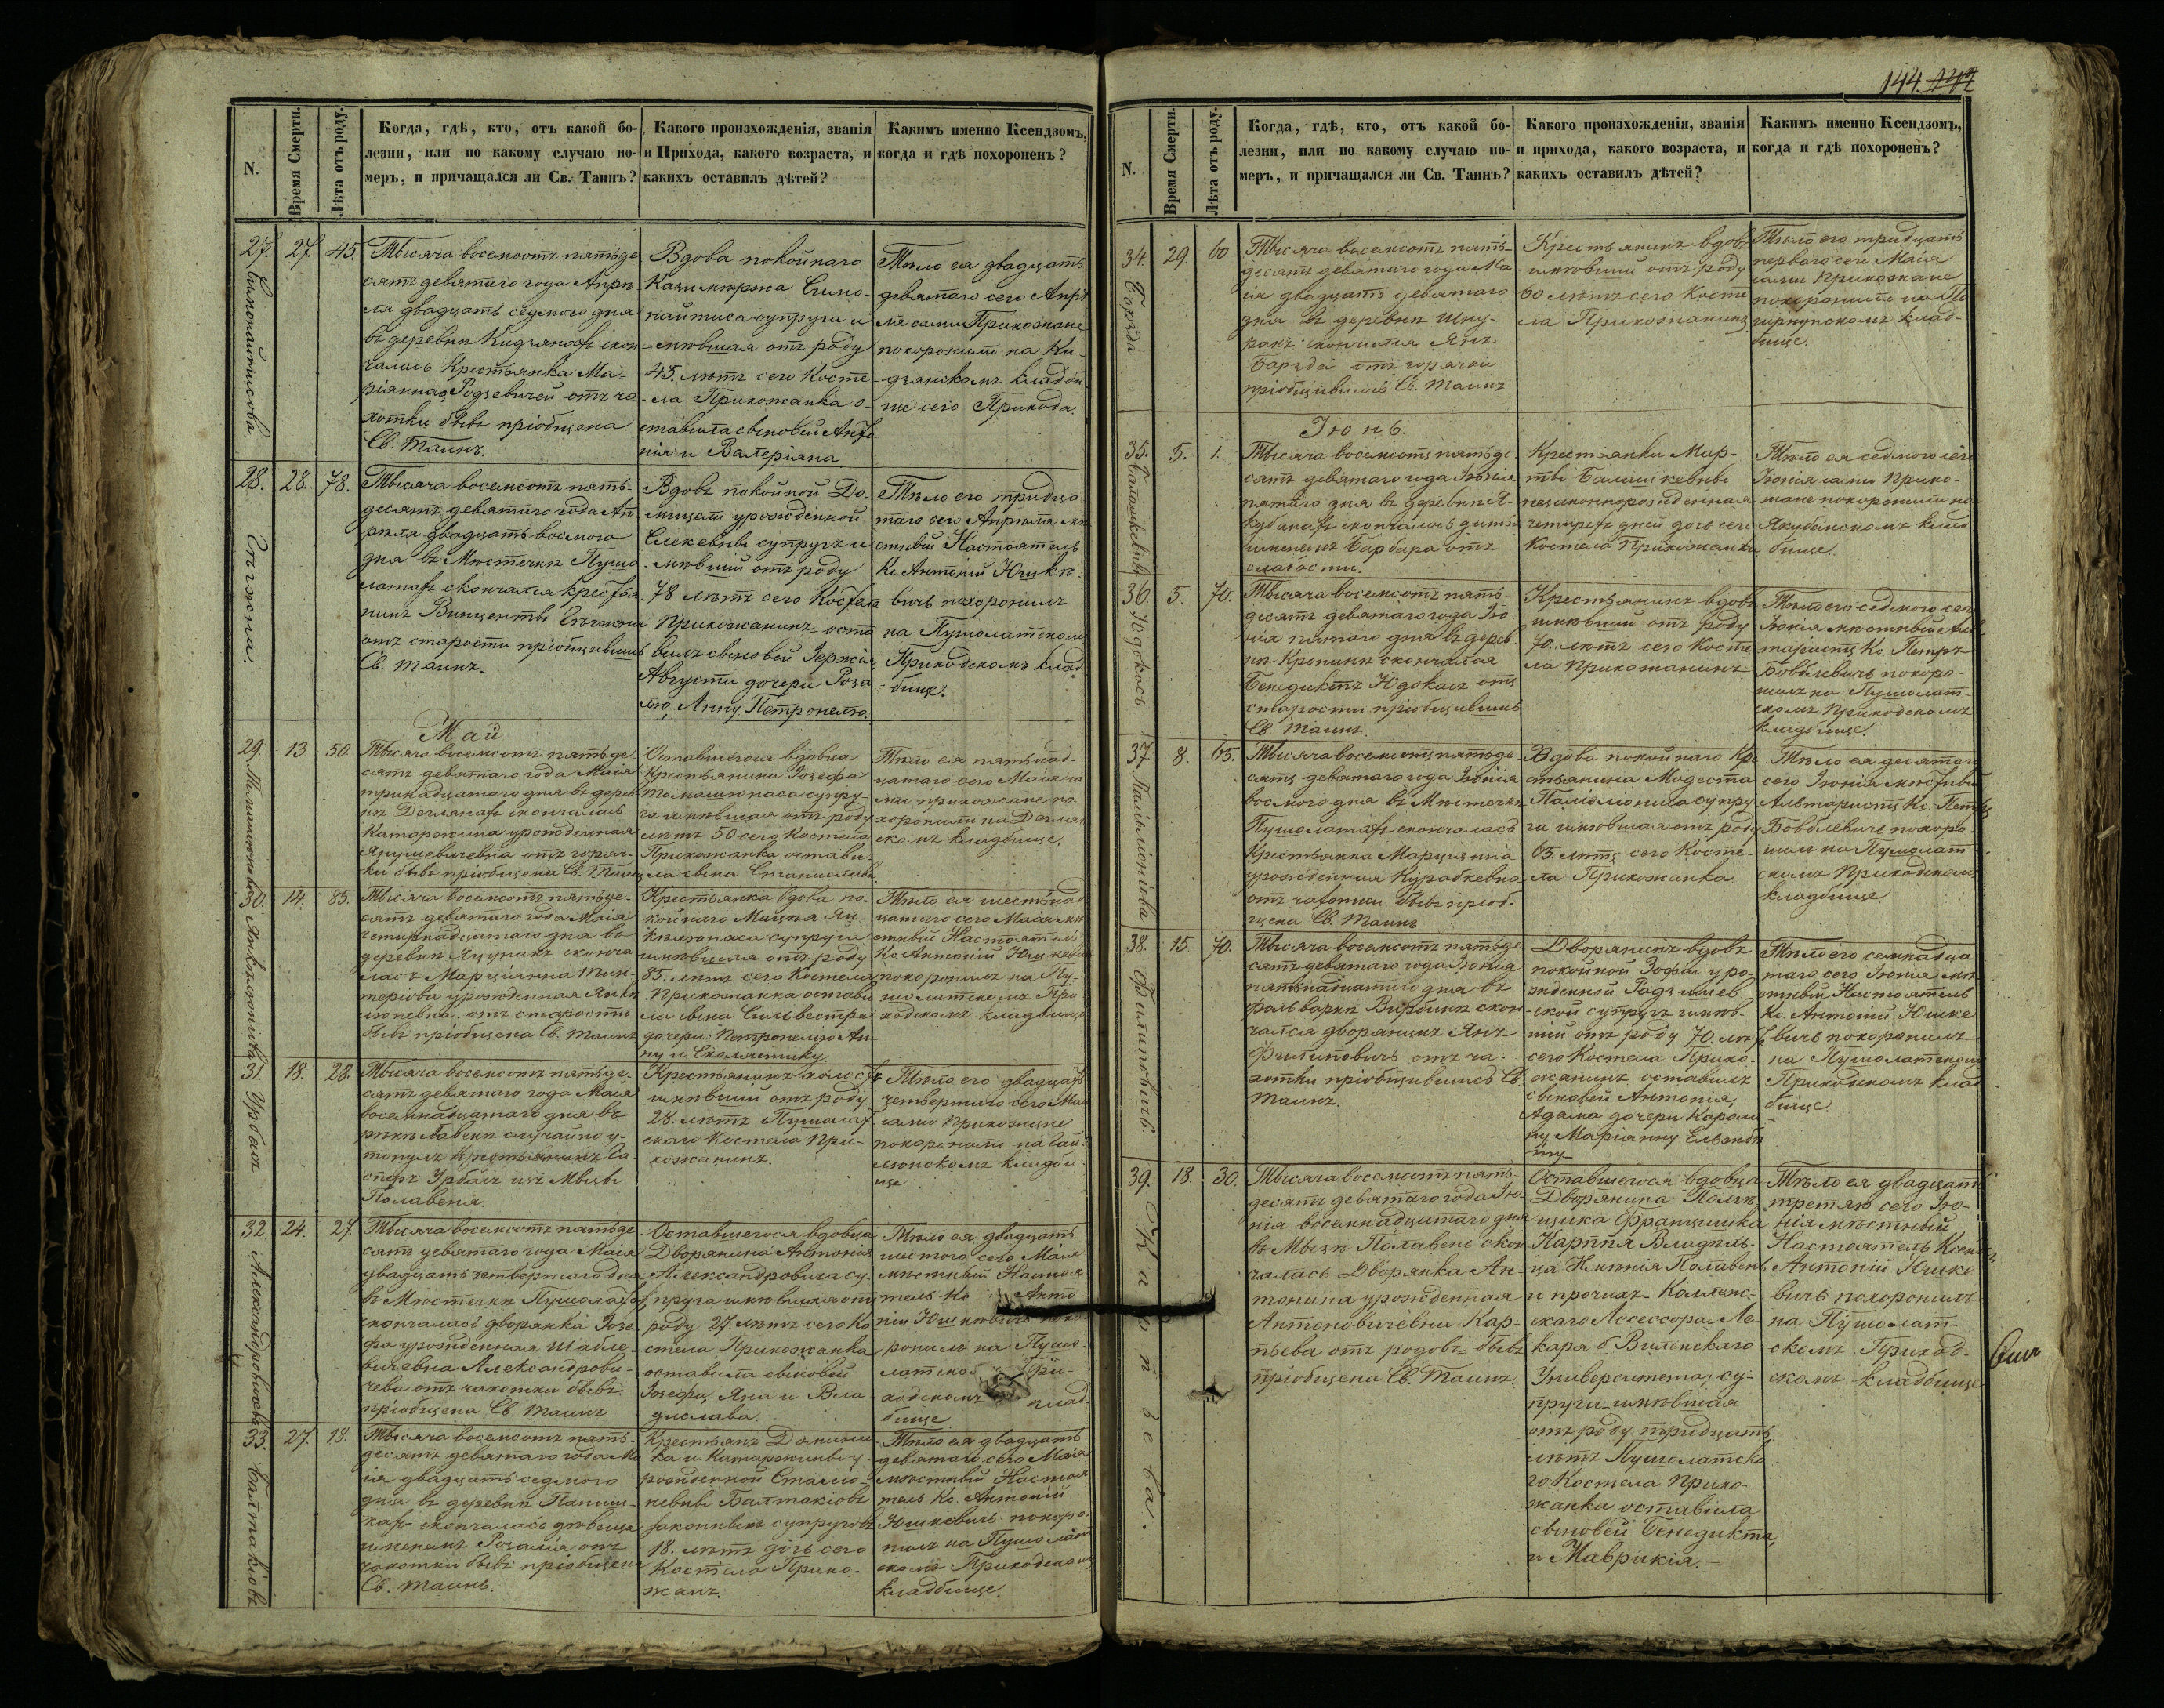 144. 142
N.
Время Смерти.
Лѣта отъ роду.
Когда, гдѣ, кто, отъ какой бо-
лезни, или по какому случаю по-
меръ, и причащался ли Св. Таинъ?
Какого произхожденія, званія
и Прихода, какого возраста, и
какихъ оставилъ дѣтей?
Какимъ именно Ксендзомъ,
когда и гдѣ похороненъ?
27. 27. 45.
Тысяча восемсотъ пятьде
сятъ девятаго года Апрѣ
ля двадцать седмого дня
въ деревни скон
чалась Крестьянка Ма-
ріанна Родзевичей отъ ча
хотки бывъ пріобщена
Св. Таинъ.
Вдова покойнаго
Казимѣржа Симо-
найтиса супруга и
мѣвшая отъ роду
45. лѣтъ сего Косте
ла Прихожанка о-
ставила сыновей Анто
нія и Валеріана
Тѣло ея двадцать
девятаго сего Апрѣ
ля сами Прихожане
похоронили на Ки-
дзянскомъ кладби
ще сего Прихода.
28. 28. 78.
Тысяча восемсотъ пять-
десятъ девятаго года Ап
рѣля двадцать восмого
дня въ Мѣстечкѣ Пушо
латахъ скончался крестья
нинъ Винценты
отъ старости пріобщившись
Св. Таинъ.
Вдовъ покойной До-
мицели урожденной
супругъ и
мѣвшій отъ роду
78 лѣтъ сего Костела
Прихожанинъ оста
вилъ сыновей Іержія
Августа дочери Роза
лію, Анну, Петронелю.
Тѣло его тридца
таго сего Апрѣля мѣ
стный Настоятель
Кс. Антоній Юшке
вичъ похоронилъ
на Пушолатскомъ
Приходскомъ клад
бище.
Май
29. 13. 50.
Тысяча восемсотъ пятьде
сятъ девятаго года Маія
тринадцатаго дня въ дерев
нѣ скончалась
Катаржина урожденная
Янушевичевна отъ горяч
ки бывъ пріобщена Св. Таинъ
Оставшегося вдовца
Крестьянина Іозефа
Томашюнаса супру-
га имѣвшая отъ роду
лѣтъ 50 сего Костела
Прихожанка остави
ла сына Станислава
Тѣло ея пятьнад-
цатаго сего Маія са
ми прихожане по
хоронили на
скомъ кладбище.
30. 14. 85.
Тысяча восемсотъ пятьде-
сятъ девятаго года Маія
четырнадцатаго дня въ
деревнѣ сконча
лась Марціанна
урожденная
отъ старости
бывъ пріобщена Св. Таинъ
Крестьянка вдова по
койнаго Мацея
супруга
имѣвшая отъ роду
85. лѣтъ сего Костела
Прихожанка остави
ла сына Сильвестра
дочери: Петронелю Ан-
ну и Схолястику
Тѣло ея шестьнад
цатаго сего Маія мѣ
стный Настоятель
Кс. Антоній Юшкевичъ
похоронилъ на Пу-
шолатскомъ При
ходскомъ кладбище
31. 18. 28.
Тысяча восемсотъ пятьде-
сятъ девятаго года Маія
восемнадцатаго дня въ
рѣкѣ случайно у-
тонулъ крестьянинъ Ка-
сперъ Урбанъ изъ Мызы
Полавеня.
Крестьянинъ холостъ
имѣвшій отъ роду
28. лѣтъ Пушолат
скаго Костела При-
хожанинъ.
Тѣло его двадцать
четвертаго сего Маія
сами Прихожане
похоронили на
кладби
ще.
32. 24. 27.
Тысяча восемсотъ пятьде
сятъ девятаго года Маія
двадцать четвертаго дня
въ Мѣстечкѣ Пушолатахъ
скончалась дворянка Іозе-
фа урожденная Шабле-
вичевна Александрови-
чева отъ чахотки бывъ
пріобщена Св. Таинъ
Оставшегося вдовца
Дворянина Антонія
Александровича су-
пруга имѣвшая отъ
роду 27 лѣтъ сего Ко
стела Прихожанка
оставила сыновей
Іозефа, Яна и Вла
дислава.
Тѣло ея двадцать
шестого сего Маія
мѣстный Настоя
тель Кс. Анто-
ній Юшкевичъ похо
ронилъ на Пушо
латскомъ При-
ходскомъ клад
бище
33. 27. 18.
Тысяча восемсотъ пять-
десятъ девятаго года Ма
ія двадцать седмого
дня въ деревнѣ
скончалась дѣвица
именемъ Розалія отъ
чахотки бывъ пріобщена
Св. Таинъ.
Крестьянъ Домини-
ка и Катаржины у-
рожденной
Балтакіовъ
законныхъ супруговъ
18. лѣтъ дочь сего
Костела Прихо-
жанъ.
Тѣло ея двадцать
девятаго сего Маія
мѣстный Настоя
тель Кс. Антоній
Юшкевичъ похоро
нилъ на Пушолат
скомъ Приходскомъ
кладбище.
N.
Время Смерти.
Лѣта отъ роду.
Когда, гдѣ, кто, отъ какой бо-
лезни, или по какому случаю по-
меръ, и причащался ли Св. Таинъ?
Какого произхожденія, званія
и прихода, какого возраста, и
какихъ оставилъ дѣтей?
Какимъ именно Ксендзомъ,
когда и гдѣ похороненъ?
34. 29. 60.
Тысяча восемсотъ пять-
десятъ девятаго года Ма
ія двадцать девятаго
дня въ деревнѣ
скончился Янъ
отъ горячки
пріобщившись Св. Таинъ
Крестьянинъ вдовъ
имѣвшій отъ роду
60 лѣтъ сего Косте
ла Прихожанинъ
Тѣло его тридцать
первого сего Маія
сами Прихожане
похоронили на
клад-
бище.
Іюнь.
35. 5. 1.
Тысяча восемсотъ пятьде-
сятъ девятаго года Іюнія
пятаго дня въ деревнѣ Я-
кубанахъ скончалось дитя
именемъ Барбара отъ
слабости.
Крестьянки Мар-
ты Балашкевны
незаконнорожденная
четырехъ дней дочь сего
Костела Прихожанки
Тѣло ея седмого сего
Іюнія сами Прихо-
жане похоронили на
Якубанскомъ клад
бище.
36. 5. 70.
Тысяча восемсотъ пять-
десятъ девятаго года Ію
нія пятаго дня въ дерев
нѣ скончался
Бенедиктъ отъ
старости пріобщившись
Св. Таинъ.
Крестьянинъ вдовъ
имѣвшій отъ роду
70. лѣтъ сего Косте
ла Прихожанинъ
Тѣло его седмого сего
Іюнія мѣстный Аль
таристъ Кс. Петръ
Бовблевичъ похоро-
нилъ на Пушолат-
скомъ Приходскомъ
кладбище.
37. 8. 65.
Тысяча восемсотъ пятьде
сятъ девятаго года Іюнія
восмого дня въ Мѣстечкѣ
Пушолатахъ скончалась
Крестьянка Марцианна
урожденная
отъ чахотки бывъ пріоб-
щена Св. Таинъ
Вдова покойнаго Кре
стьянина Модеста
супру
га имѣвшая отъ роду
65. лѣтъ сего Косте-
ла Прихожанка
Тѣло ея десятаго
сего Іюнія мѣстный
Альтаристъ Кс. Петръ
Бовблевичъ похоро-
нилъ на Пушолат
скомъ Приходскомъ
кладбище.
38. 15. 70.
Тысяча восемсотъ пятьде
сятъ девятаго года Іюнія
пятьнадцатаго дня въ
фольваркѣ скон-
чался дворянинъ Янъ
Филиповичъ отъ ча-
хотки пріобщившись Св.
Таинъ.
Дворянинъ вдовъ
покойной Зофіи уро-
жденной
супругъ имѣв-
шій отъ роду 70. лѣтъ
сего Костела Прихо-
жанинъ оставилъ
сыновей Антонія,
Адама дочери Кароли-
ну Маріянну Ельжбѣ
ту
Тѣло его семнадца
таго сего Іюнія мѣ
стный Настоятель
Кс. Антоній Юшке
вичъ похоронилъ
на Пушолатскомъ
Приходскомъ клад
бище.
39. 18. 30.
Тысяча восемсотъ пять-
десятъ девятаго года Ію
нія восемнадцатаго дня
въ Мызѣ Полавень скон
чалась Дворянка Ан-
тонина урожденная
Антоновичевна Кар-
пьева отъ родовъ бывъ
пріобщена Св. Таинъ.
Оставшегося вдовца
Дворянина Помѣ
щика Францишка
Карпія Владѣль-
ца Имѣнія Полавень
и прочихъ Коллеж-
скаго Ассессора Ле-
каря б. Виленскаго
Университета, су-
пруга имѣвшая
отъ роду тридцать
лѣтъ Пушолатска
го Костела Прихо-
жанка оставила
сыновей Бенедикта,
и Маврикія. –
Тѣло ея двадцать
третяго сего Ію-
нія мѣстный
Настоятель Ксендзъ
Антоній Юшке
вичъ похоронилъ
на Пушолат-
скомъ Приход-
скомъ кладбище